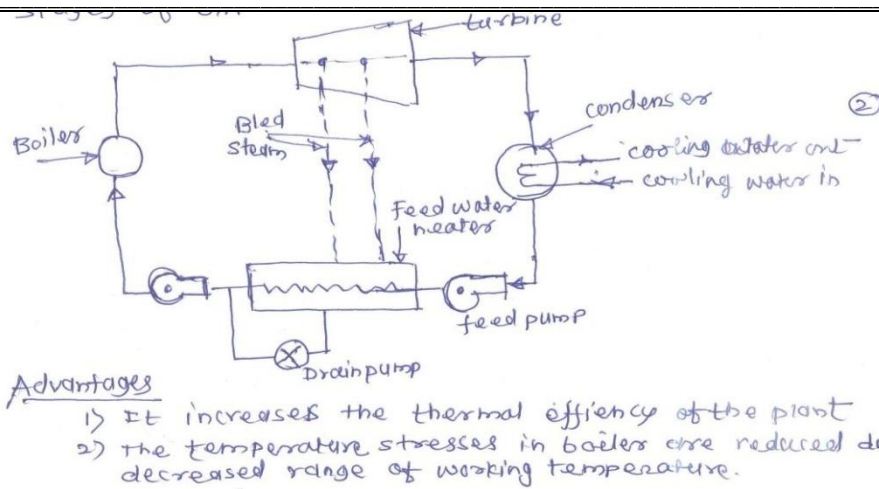 turbine
②
condenser
Bled
steam
Boiler
cooling water out
cooling water in
Feed water
heater
feed pump
Drainpump
Advantages
1) It increases the thermal effiency of the plant
2) The temperature stresses in boiler are reduced
decreased range of working temperature.